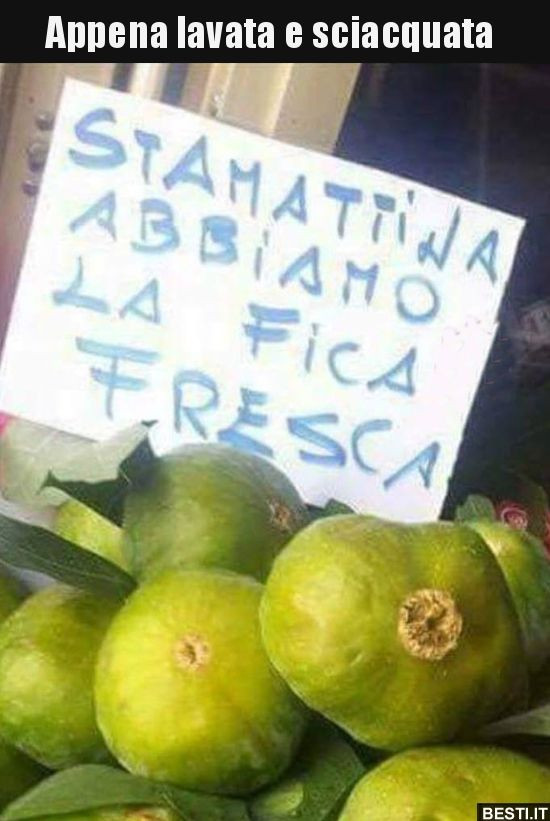 Appena lavata e sciacquata
STAMATTINA
ABBIAMO
LA FICA
FRESCA
BESTI.IT